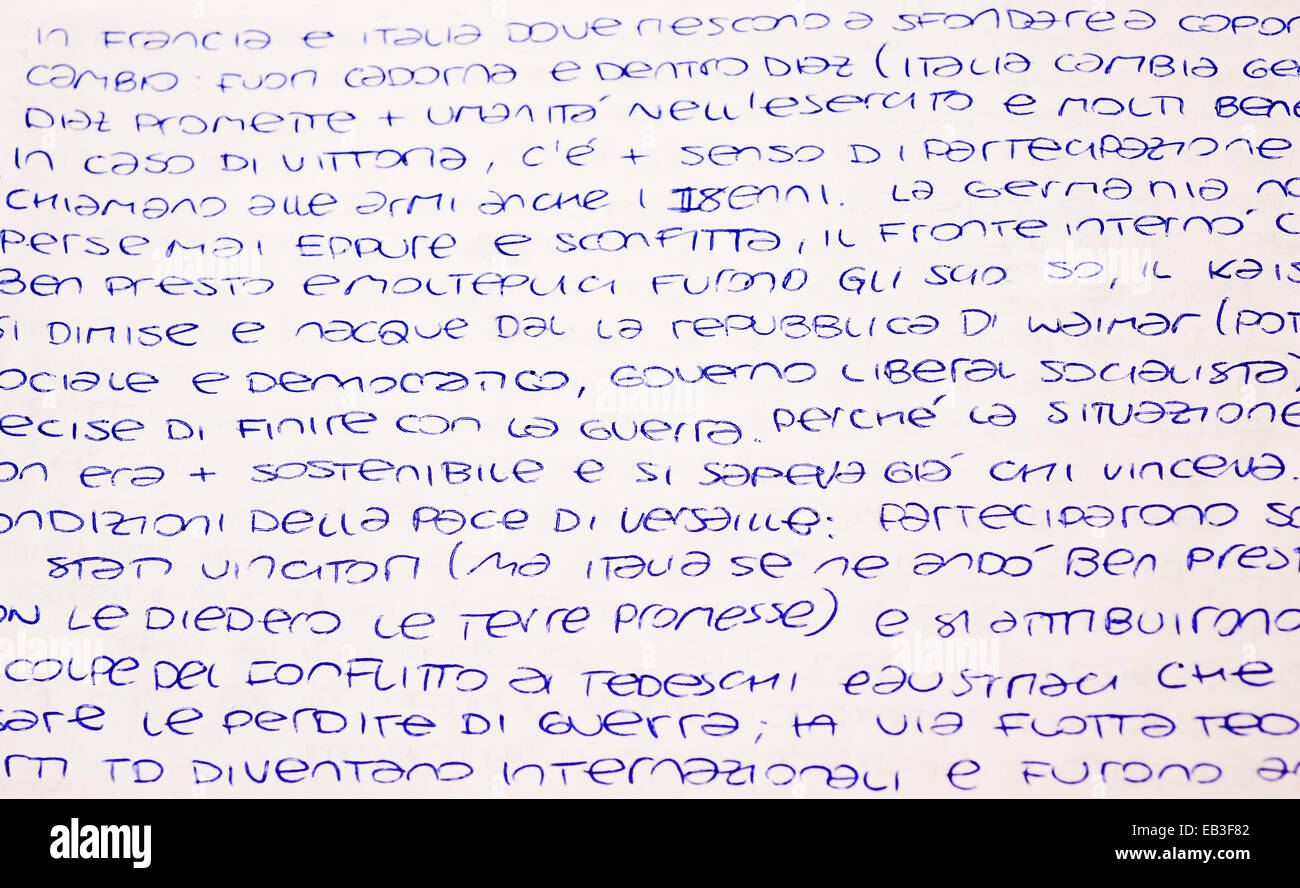 IN FRANCIA E ITALIA DOVE RIESCONO A SFONDARE A CAPOR
CAMBIO: FUORI CADORNA E DENTRO DIAZ (ITALIA CAMBIA GE
DIAZ PROMETTE + UMANITÁ NELL'ESERCITO E MOLTI BENE
IN CASO DI VITTORIA, C'É + SENSO DI PARTECIPAZIONE
CHIAMANO ALLE ARMI ANCHE I 18ENNI. LA GERMANIA NO
PERSE MAI EPPURE E SCONFITTA, IL FRONTE INTERNO C
BEN PRESTO E MOLTEPLICI FURONO GLI SCIO SO, IL KAIS
SI DIMISE E NACQUE DAL LA REPUBBLICA DI WAIMAR (POT
OCIALE E DEMOCRATICO, GOVERNO LIBERAL SOCIALISTA)
ECISE DI FINIRE CON LA GUERRA. PERCHÉ LA SITUAZIONE
ON ERA + SOSTENIBILE E SI SAPEVA GIÁ CHI VINCEVA.
ONDIZIONI DELLA PACE DI VERSAILLE: PARTECIPARONO SO
STATI VINCITORI (MA ITALIA SE NE ANDÓ BEN PREST
ON LE DIEDERO LE TERRE PROMESSE) E SI ATTRIBUIRONO
COLPE DEL CONFLITTO AI TEDESCHI E AUSTRIACI CHE
GARE LE PERDITE DI GUERRA; IA VIA FLOTTA TED
RTI TD DIVENTANO INTERNAZIONALI E FURONO AN
alamy
alamy stock photo
EB3F82
www.alamy.com